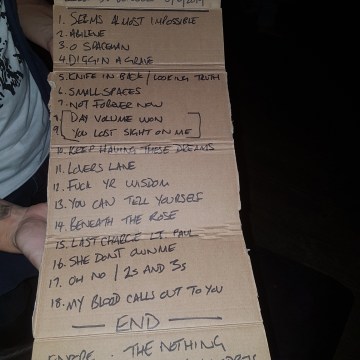 1. SEEMS ALMOST IMPOSSIBLE
2. ABILENE
3. O SPACEMAN
4. DIGGIN A GRAVE
5. KNIFE IN BACK / LOOKING TRUTH
6. SMALL SPACES
7. NOT FOREVER NOW
8 DAY VOLUME WON
9 YOU LOST SIGHT ON ME
10. KEEP HAVING THESE DREAMS
11. LOVERS LANE
12. FUCK YR WISDOM
13. YOU CAN TELL YOURSELF
14. BENEATH THE ROSE
15. LAST CHARGE LT. PAUL
16. SHE DON'T OWN ME
17. OH NO / 2S AND 3S
18. MY BLOOD CALLS OUT TO YOU
— END —
ENCORE: THE NOTHING